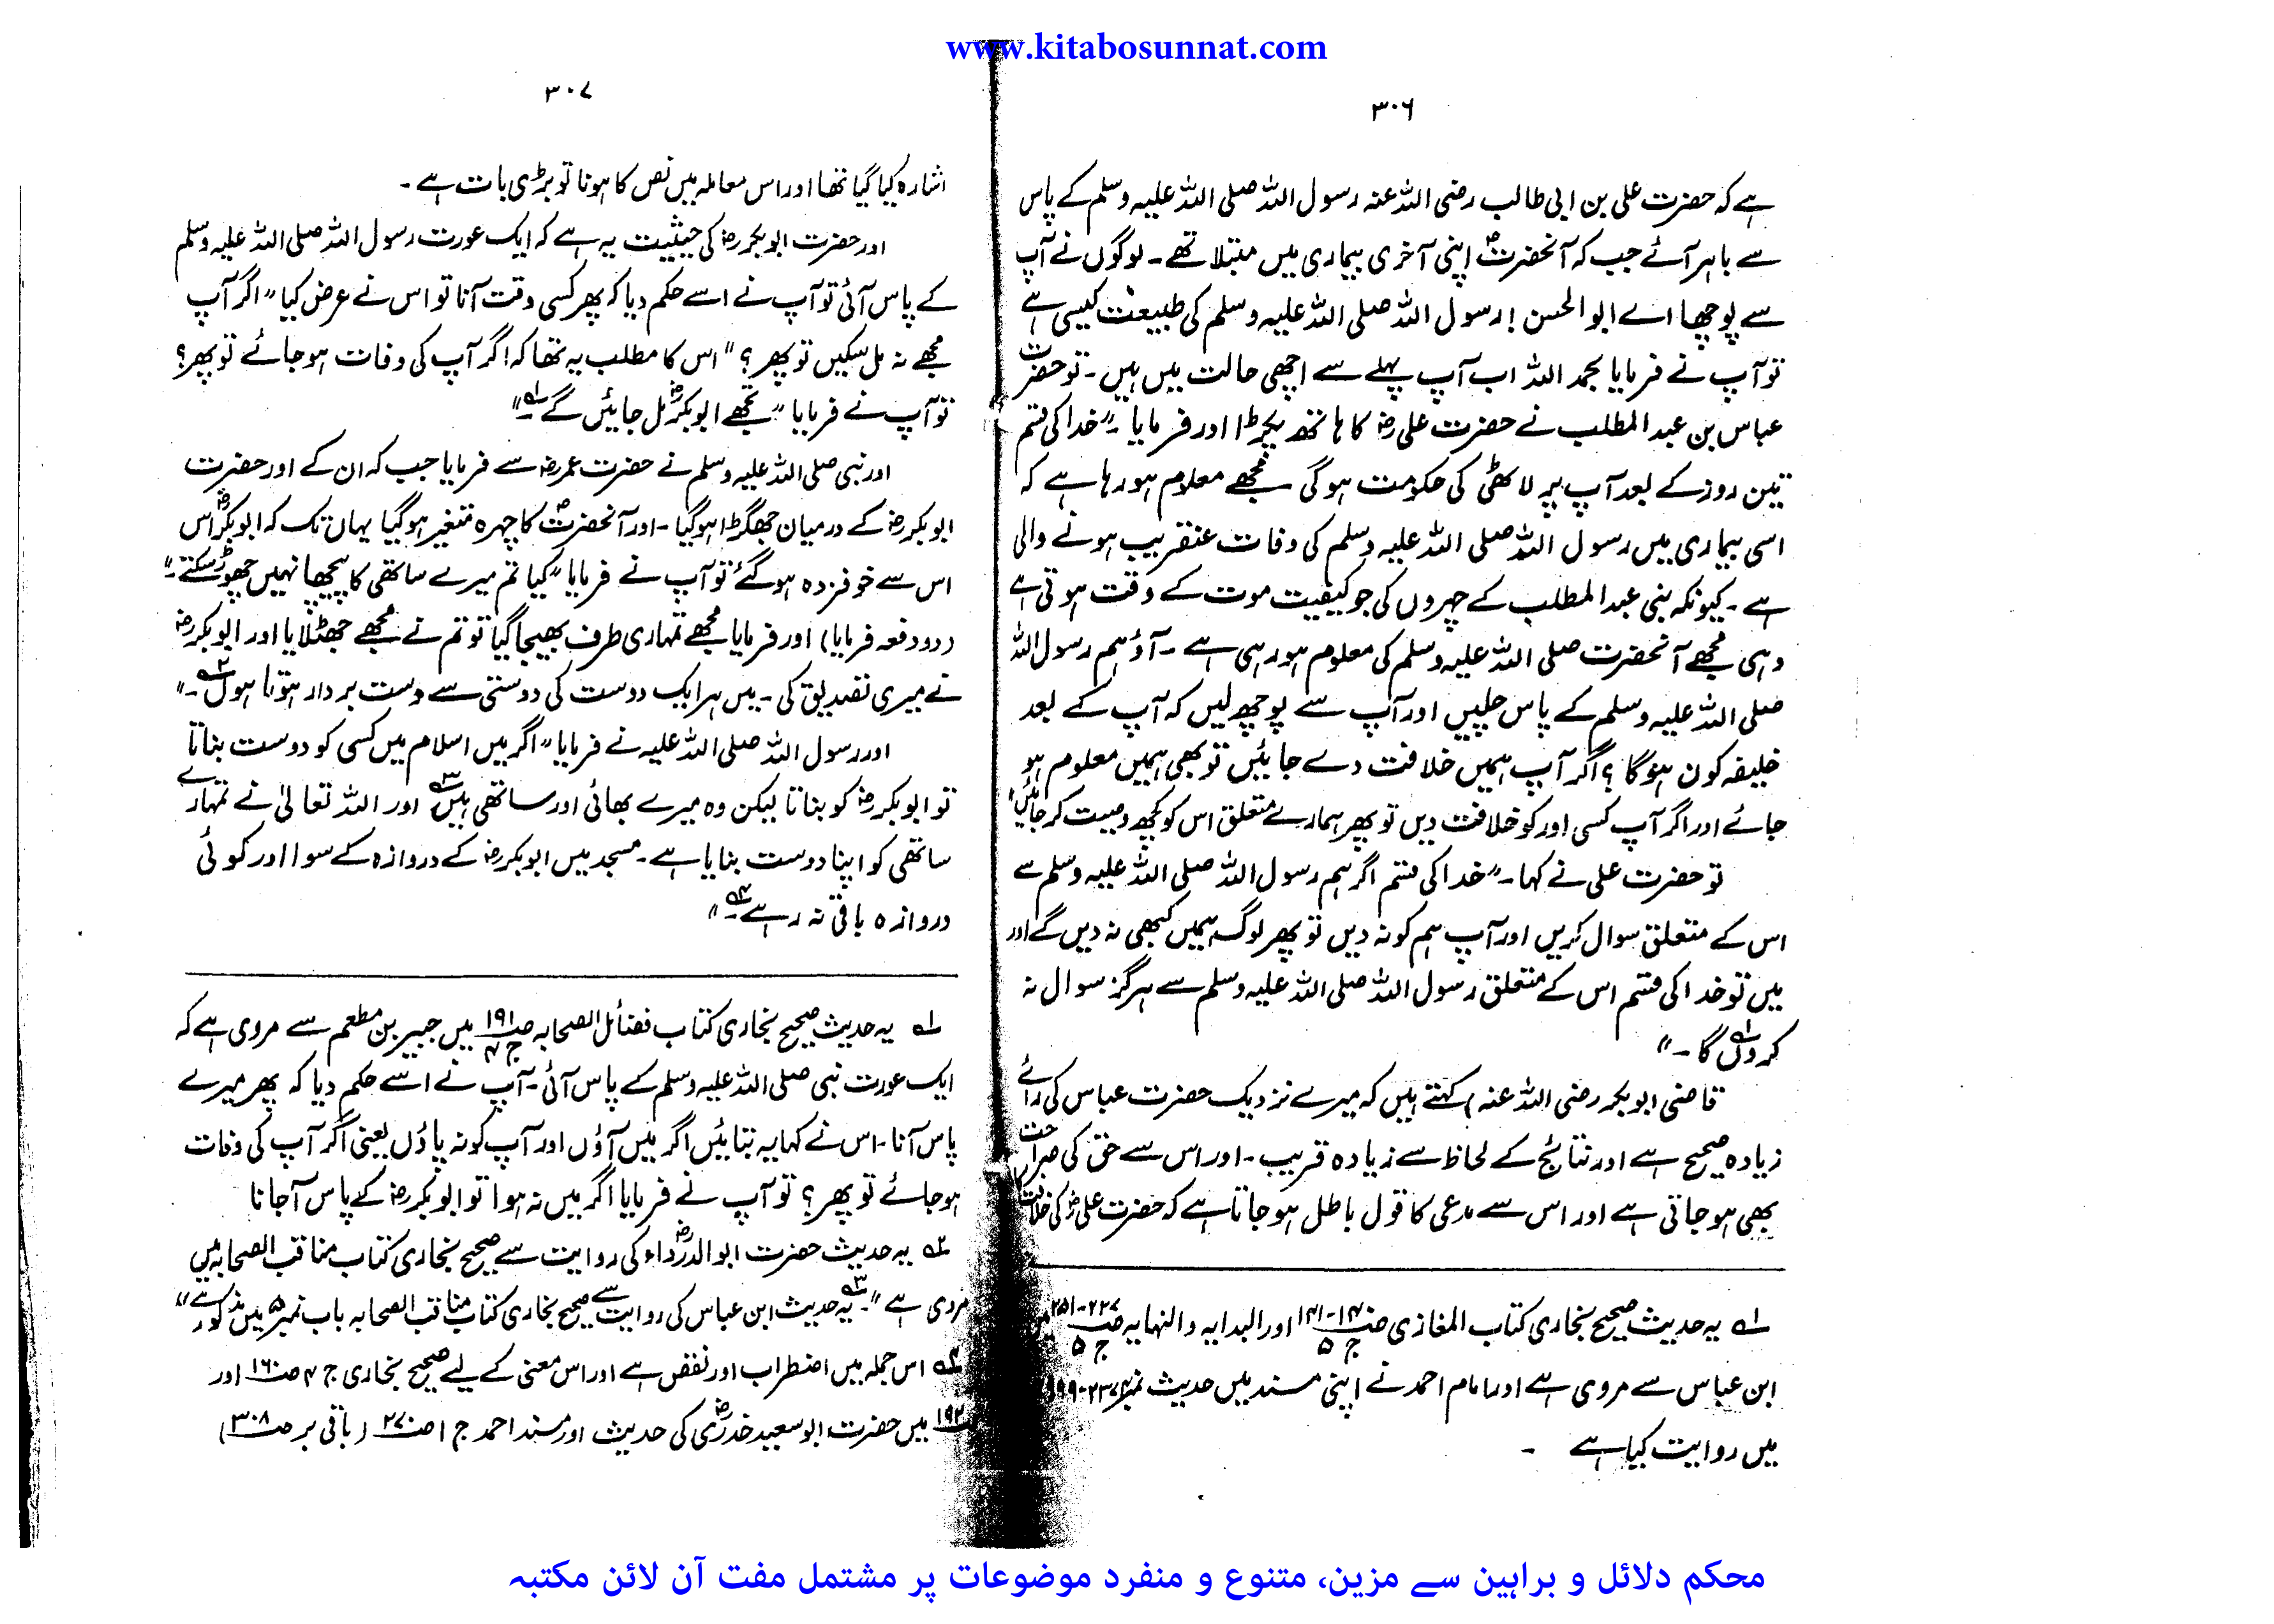 www.kitabosunnat.com
۳۰۶
ہے کہ حضرت علی بن ابی طالب رضی اللہ عنہ رسول اللہ صلی اللہ علیہ وسلم کے پاس
سے باہر آئے جب کہ آنحضرتؐ اپنی آخری بیماری میں مبتلا تھے۔ لوگوں نے آپ
سے پوچھا اے ابوالحسن! رسول اللہ صلی اللہ علیہ وسلم کی طبیعت کیسی ہے
تو آپ نے فرمایا بحمد اللہ اب آپ پہلے سے اچھی حالت میں ہیں۔ تو حضرت
عباس بن عبدالمطلب نے حضرت علیؓ کا ہاتھ پکڑا اور فرمایا۔ "خدا کی قسم
تین روز کے بعد آپ پر لاٹھی کی حکومت ہوگی مجھے معلوم ہو رہا ہے کہ
اسی بیماری میں رسول اللہ صلی اللہ علیہ وسلم کی وفات عنقریب ہونے والی
ہے۔ کیونکہ بنی عبدالمطلب کے چہروں کی جو کیفیت موت کے وقت ہوتی ہے
وہی مجھے آنحضرت صلی اللہ علیہ وسلم کی معلوم ہو رہی ہے۔ آؤ ہم رسول اللہ
صلی اللہ علیہ وسلم کے پاس چلیں اور آپ سے پوچھ لیں کہ آپ کے بعد
خلیفہ کون ہوگا؟ اگر آپ ہمیں خلافت دے جائیں تو بھی ہمیں معلوم ہو
جائے اور اگر آپ کسی اور کو خلافت دیں تو پھر ہمارے متعلق اس کو کچھ وصیت کر جائیں"
تو حضرت علی نے کہا۔ "خدا کی قسم اگر ہم رسول اللہ صلی اللہ علیہ وسلم سے
اس کے متعلق سوال کریں اور آپ ہم کو نہ دیں تو پھر لوگ ہمیں کبھی نہ دیں گے اور
میں تو خدا کی قسم اس کے متعلق رسول اللہ صلی اللہ علیہ وسلم سے ہرگز سوال نہ
کروں گا۔"۱؎
قاضی ابوبکر رضی اللہ عنہ) کہتے ہیں کہ میرے نزدیک حضرت عباس کی رائے
زیادہ صحیح ہے اور نتائج کے لحاظ سے زیادہ قریب۔ اور اس سے حق کی صراحت
بھی ہو جاتی ہے اور اس سے مدعی کا قول باطل ہو جاتا ہے کہ حضرت علیؓ کی خلافت کا
۱؎ یہ حدیث صحیح بخاری کتاب المغازی ص۱۴۰-۱۴۱ ج ۵ اور البدایہ والنہایہ ص۲۲۷-۲۵۱ ج ۵ میں
ابن عباس سے مروی ہے اور امام احمد نے اپنی مسند میں حدیث نمبر
میں روایت کیا ہے۔
۳۰۷
اشارہ کیا گیا تھا اور اس معاملہ میں نص کا ہونا تو بڑی بات ہے۔
اور حضرت ابوبکرؓ کی حیثیت یہ ہے کہ ایک عورت رسول اللہ صلی اللہ علیہ وسلم
کے پاس آئی تو آپ نے اسے حکم دیا کہ پھر کسی وقت آنا تو اس نے عرض کیا "اگر آپ
مجھے نہ مل سکیں تو پھر؟" اس کا مطلب یہ تھا کہ اگر آپ کی وفات ہو جائے تو پھر؟
تو آپ نے فرمایا "تجھے ابوبکرؓ مل جائیں گے۱؎۔"
اور نبی صلی اللہ علیہ وسلم نے حضرت عمرؓ سے فرمایا جب کہ ان کے اور حضرت
ابوبکرؓ کے درمیان جھگڑا ہو گیا۔ اور آنحضرتؐ کا چہرہ متغیر ہو گیا یہاں تک کہ ابوبکرؓ اس
اس سے خوفزدہ ہو گئے تو آپ نے فرمایا "کیا تم میرے ساتھی کا پیچھا نہیں چھوڑ سکتے۔"
(دو دفعہ فرمایا) اور فرمایا مجھے تمہاری طرف بھیجا گیا تو تم نے مجھے جھٹلایا اور ابوبکرؓ
نے میری تصدیق کی۔ میں ہر ایک دوست کی دوستی سے دست بردار ہوتا ہوں۲؎۔"
اور رسول اللہ صلی اللہ علیہ نے فرمایا "اگر میں اسلام میں کسی کو دوست بناتا
تو ابوبکرؓ کو بناتا لیکن وہ میرے بھائی اور ساتھی ہیں۳؎ اور اللہ تعالیٰ نے تمہارے
ساتھی کو اپنا دوست بنایا ہے۔ مسجد میں ابوبکرؓ کے دروازہ کے سوا اور کوئی
دروازہ باقی نہ رہے۴؎۔"
۱؎ یہ حدیث صحیح بخاری کتاب فضائل الصحابہ ص۱۹۱ ج ۴ میں جبیر بن مطعم سے مروی ہے کہ
ایک عورت نبی صلی اللہ علیہ وسلم کے پاس آئی۔ آپ نے اسے حکم دیا کہ پھر میرے
پاس آنا۔ اس نے کہا یہ بتائیں اگر میں آؤں اور آپ کو نہ پاؤں یعنی اگر آپ کی وفات
ہو جائے تو پھر؟ تو آپ نے فرمایا اگر میں نہ ہوا تو ابوبکرؓ کے پاس آ جانا
۲؎ یہ حدیث حضرت ابوالدرداءؓ کی روایت سے صحیح بخاری کتاب مناقب الصحابہ میں
مروی ہے"۔ ۳؎ یہ حدیث ابن عباس کی روایت سے صحیح بخاری کتاب مناقب الصحابہ باب نمبر۵ میں مذکور ہے"
۴؎ اس جملہ میں اضطراب اور نقص ہے اور اس معنی کے لیے صحیح بخاری ج ۴ ص۱۶۰ اور
ص۱۹۲ میں حضرت ابوسعید خدریؓ کی حدیث اور مسند احمد ج ۱ ص۲۷۰ (باقی بر ص۳۰۸)
محکم دلائل و براہین سے مزین، متنوع و منفرد موضوعات پر مشتمل مفت آن لائن مکتبہ